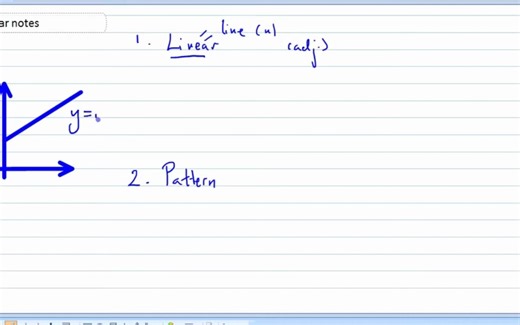 ar notes
line (n)
1. Linear (adj.)
y=
2. Pattern